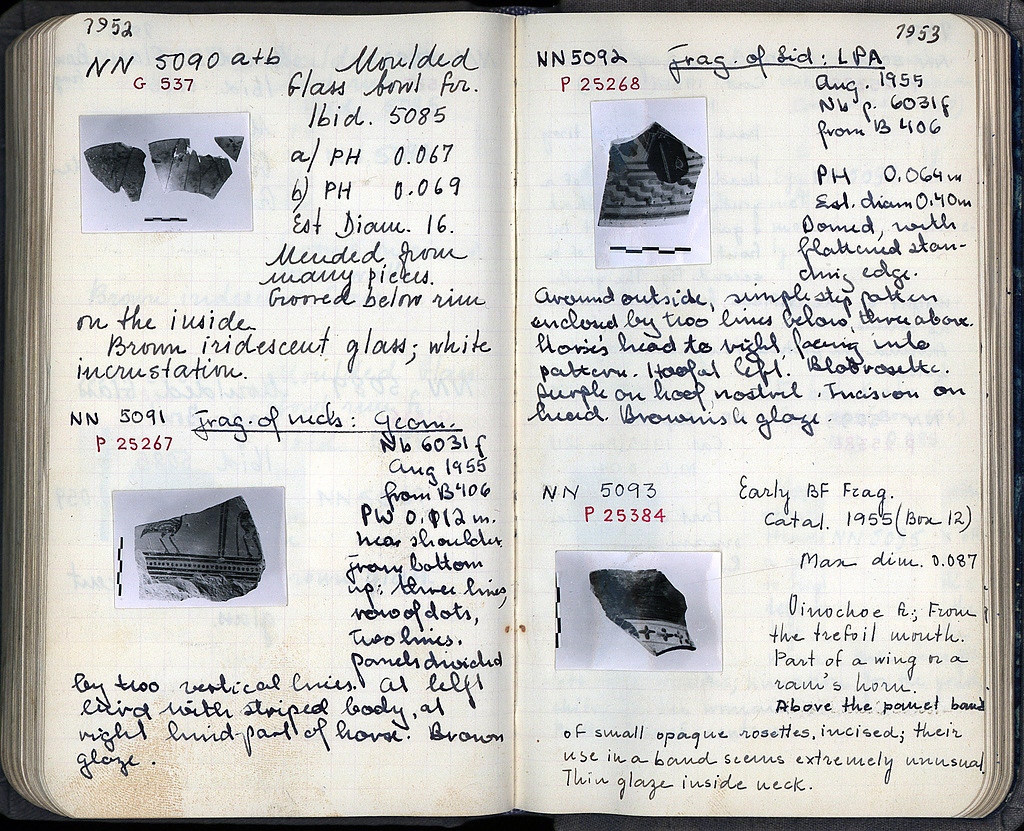 7952
NN 5090 a+b
G 537
Moulded
Glass bowl fr.
Ibid. 5085
a) PH 0.067
b) PH 0.069
Est Diam. 16.
Mended from
many pieces.
Grooved below rim
on the inside.
Brown iridescent glass; white
incrustation.
NN 5091 Frag. of neck: Geom.
P 25267
Nb 6031 f
Aug 1955
from B 406
PW 0.112 m.
Near shoulder,
from bottom
up: three lines,
row of dots,
Two lines.
panels divided
by two vertical lines. At left
bird with striped body, at
right hind-part of horse. Brown
glaze.
7953
NN 5092 Frag. of Lid: LPA
P 25268
Aug. 1955
Nb p. 6031 f
from B 406
PH 0.064 m
Est. diam 0.40 m
Domed, with
flattened stan-
ding edge.
Around outside, simple step pattern
enclosed by two lines below, three above.
Horse's head to right, facing into
pattern. Hoof at left. Blobrosette.
purple on hoof, nostril. Incision on
head. Brownish glaze.
NN 5093 Early BF Frag.
P 25384
Catal. 1955 (Box 12)
Max dim. 0.087
Oinochoe fr.; From
the trefoil mouth.
Part of a wing or a
ram's horn.
Above the panel band
of small opaque rosettes, incised; their
use in a band seems extremely unusual.
Thin glaze inside neck.